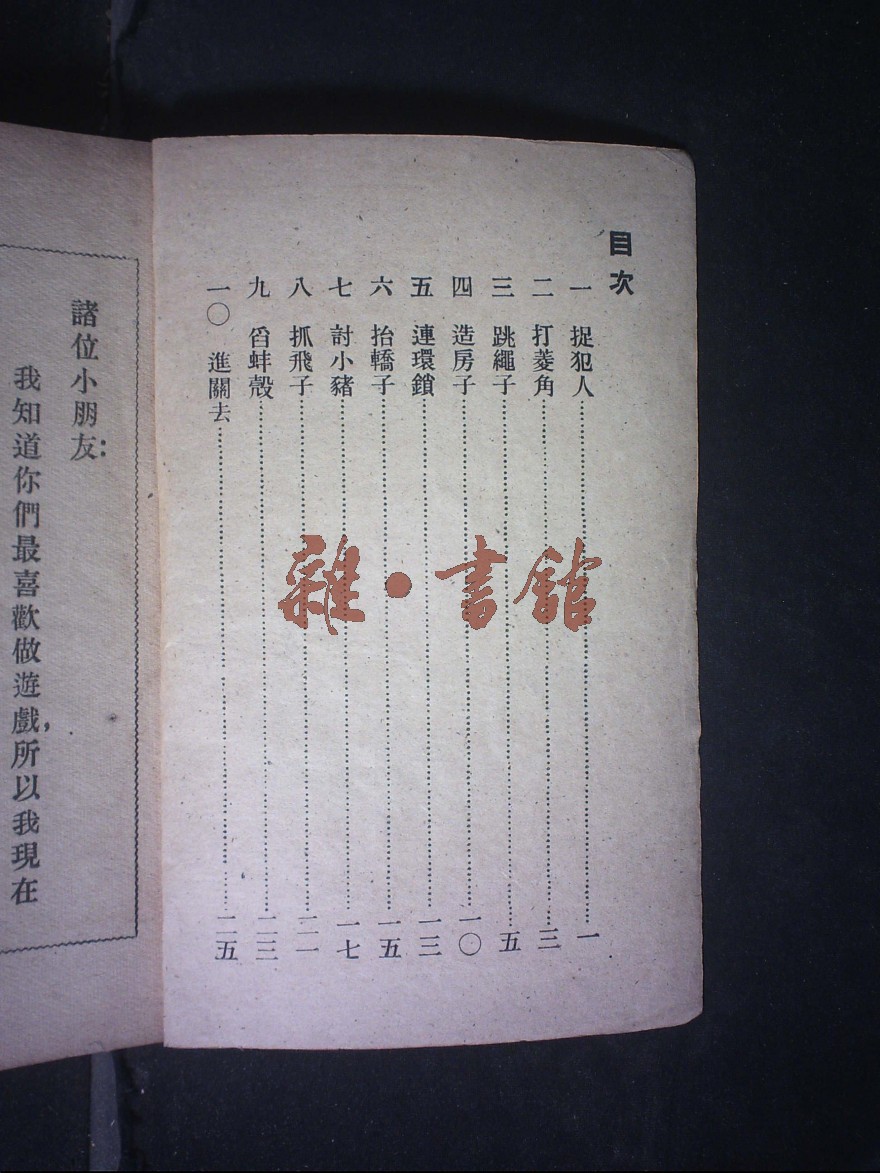 目次
一 捉犯人 一
二 打菱角 三
三 跳繩子 五
四 造房子 一〇
五 連環鎖 一三
六 抬轎子 一五
七 討小豬 一七
八 抓飛子 二一
九 舀蚌殼 二三
一〇 進關去 二五
諸位小朋友：
我知道你們最喜歡做遊戲，所以我現在
雜·書館